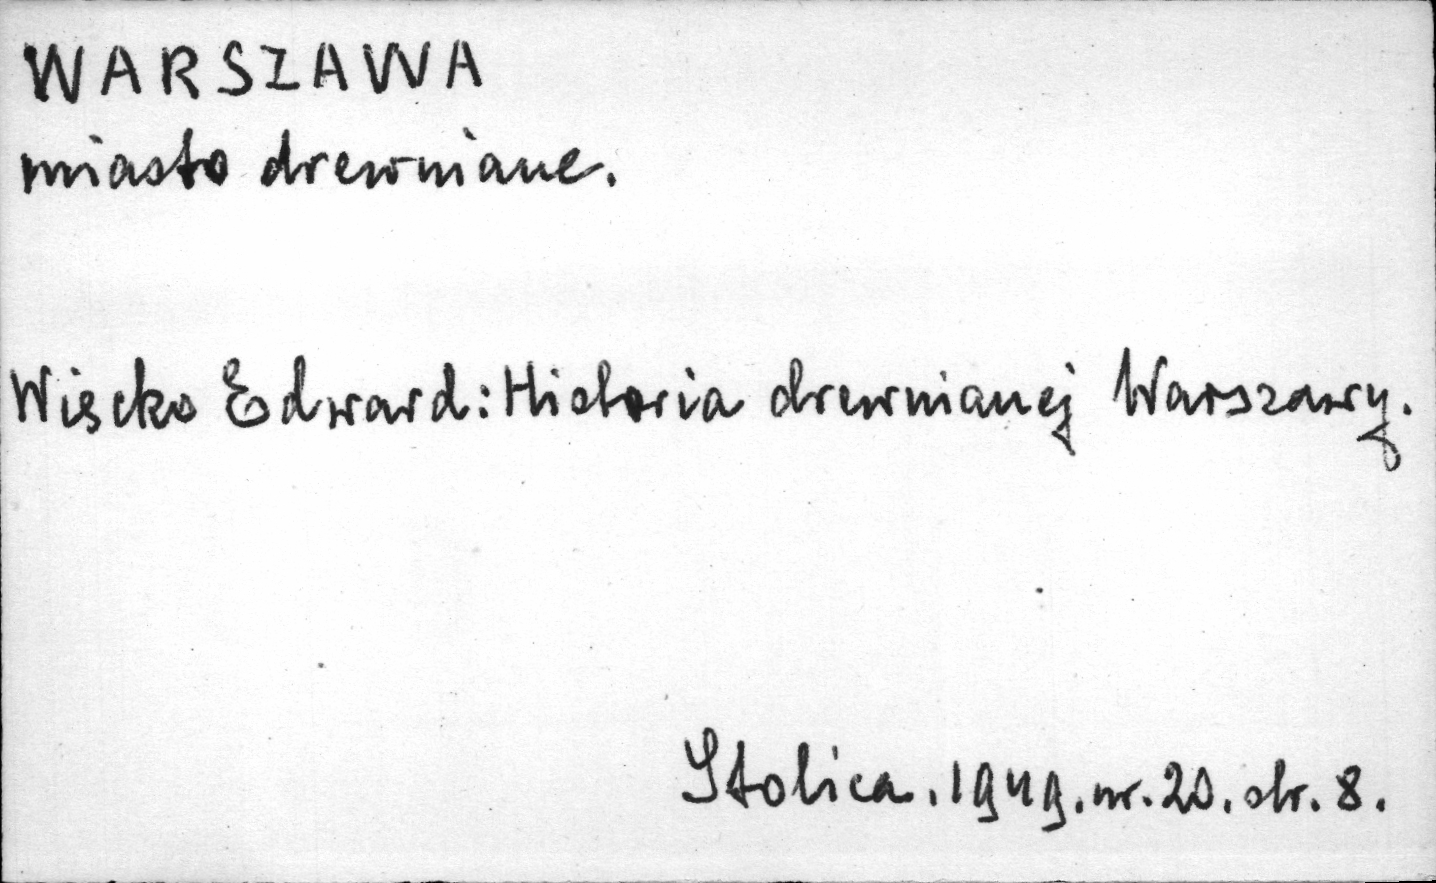 WARSZAWA
miasto drewniane.
Więcko Edward: Historia drewnianej Warszawy.
Stolica. 1949. nr. 20. str. 8.